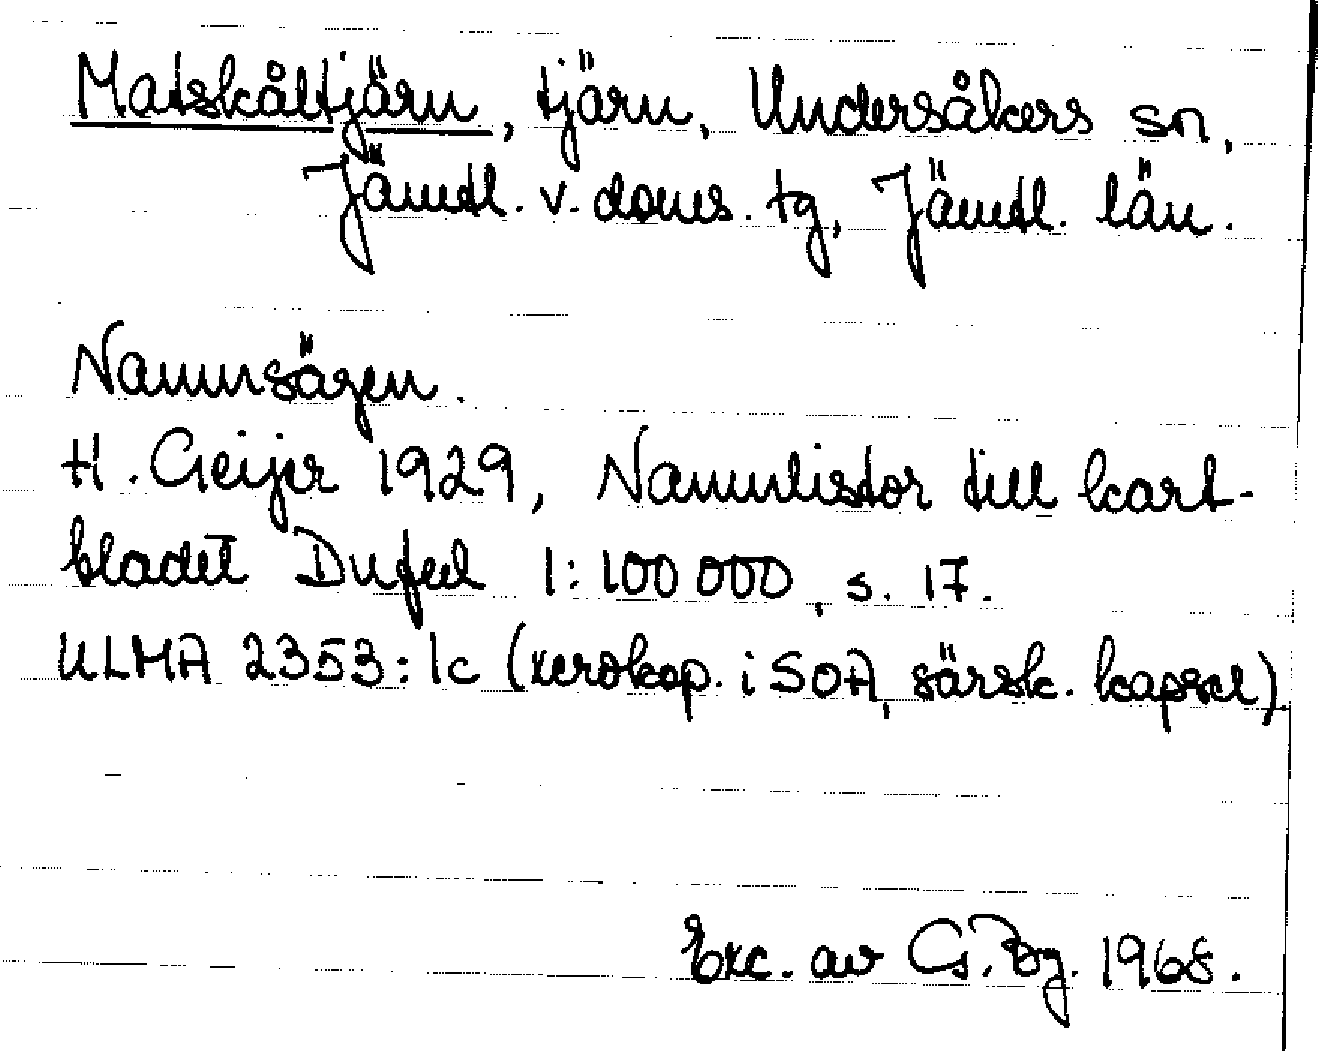 Matskåltjärn, tjärn, Undersåkers sn,
Jämtl. v. doms. tg, Jämtl. län.
Namnsägen.
H. Geijer 1929, Namnlistor till kart-
bladet Dufed 1:100 000, s. 17.
ULMA 2353:1c (xerokop. i SOA, särsk. kapsel)
Exc. av G. Bg. 1968.